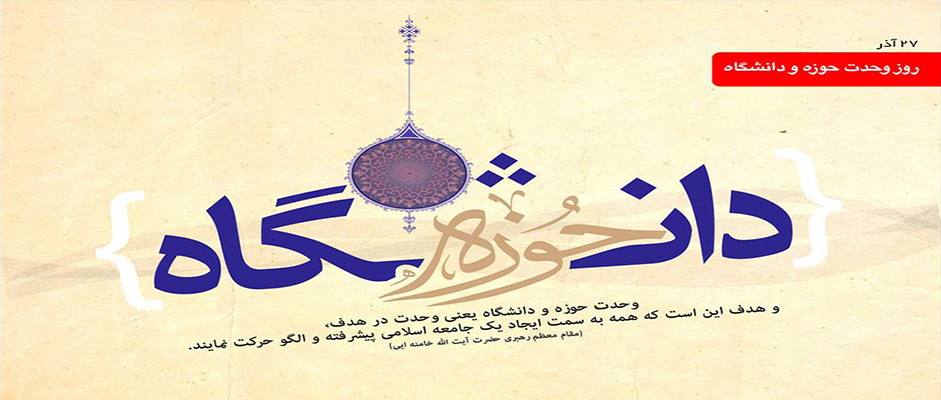 ۲۷ آذر
روز وحدت حوزه و دانشگاه
دانشگاه
حوزه
وحدت حوزه و دانشگاه یعنی وحدت در هدف،
و هدف این است که همه به سمت ایجاد یک جامعه اسلامی پیشرفته و الگو حرکت نمایند.
(مقام معظم رهبری حضرت آیت الله خامنه ایی)